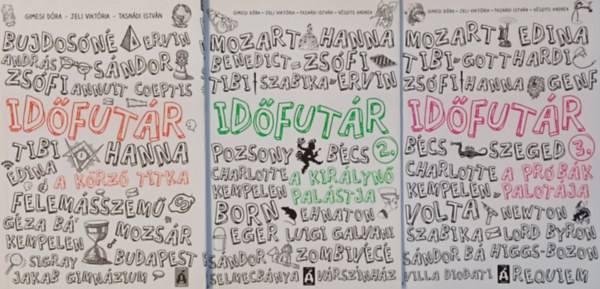 GIMESI DÓRA • JELI VIKTÓRIA • TASNÁDI ISTVÁN
BUJDOSÓNÉ ERVIN
ANDRÁS SÁNDOR
ZSÓFI ANNUIT COEPTIS
IDŐFUTÁR
TIBI HANNA
EDINA A KÖRZŐ TITKA
FELEMÁSSZEMŰ
GÉZA BÁ MOZSÁR
KEMPELEN BUDAPEST
SIGRAY
JAKAB GIMNÁZIUM
GIMESI DÓRA • JELI VIKTÓRIA • TASNÁDI ISTVÁN • VÉSSITS ANDREA
MOZART HANNA
BENEDICT ZSÓFI
TIBI SZABIKA ERVIN
IDŐFUTÁR
POZSONY BÉCS 2.
CHARLOTTE A KIRÁLYNŐ
KEMPELEN PALÁSTJA
BORN EHNATON
EGER LUIGI GALVANI
SÁNDOR ZOMBIVÉCÉ
SELMECBÁNYA VÁRSZÍNHÁZ
GIMESI DÓRA • JELI VIKTÓRIA • TASNÁDI ISTVÁN • VÉSSITS ANDREA
MOZART EDINA
TIBI GOTTHARDI
ZSÓFI HANNA GENF
IDŐFUTÁR
BÉCS SZEGED 3.
CHARLOTTE A PRÓBÁK
KEMPELEN PALOTÁJA
VOLTA NEWTON
SZABIKA LORD BYRON
SÁNDOR BÁ HIGGS-BOZON
VILLA DIODATI REQUIEM